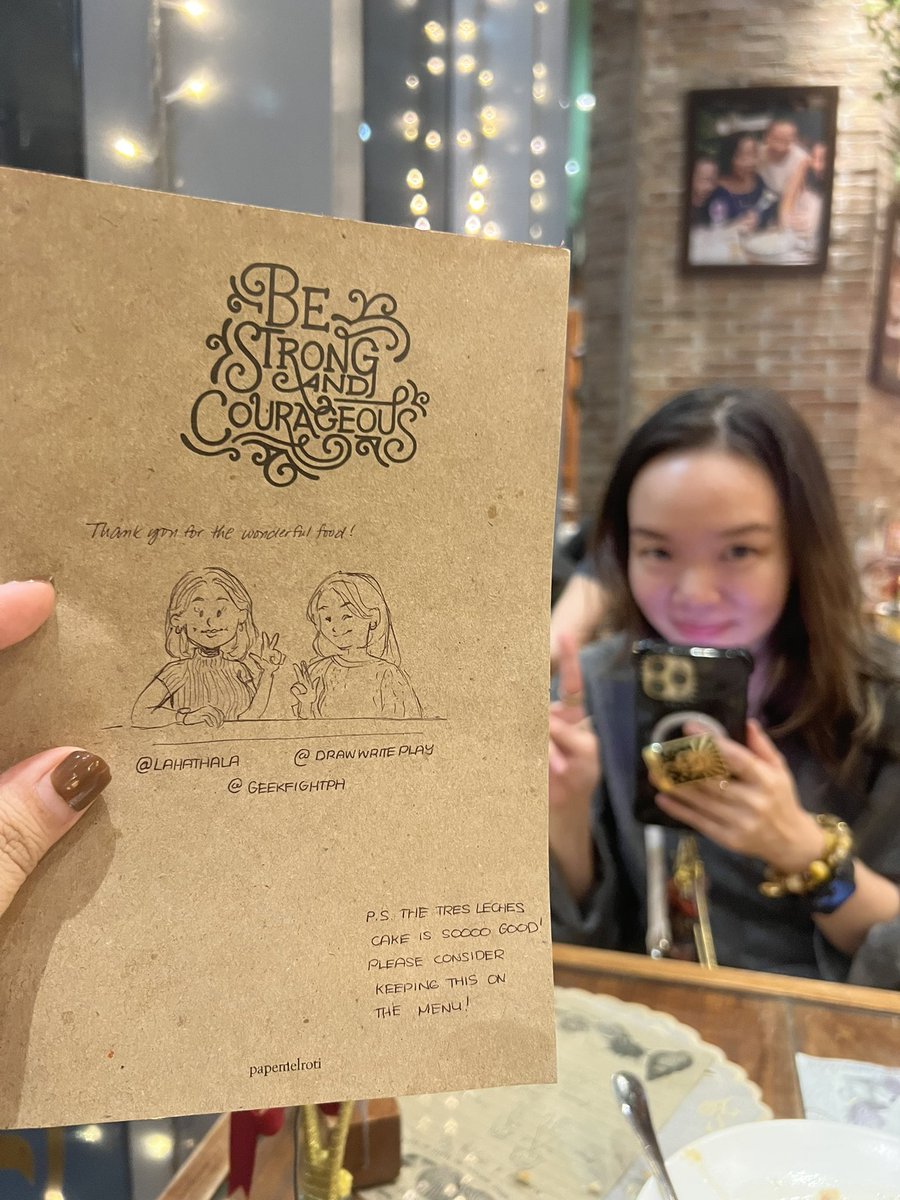 BE
STRONG
AND
COURAGEOUS
Thank you for the wonderful food!
@LAHATHALA @DRAWWRITEPLAY
@GEEKFIGHTPH
P.S. THE TRES LECHES
CAKE IS SOOOO GOOD!
PLEASE CONSIDER
KEEPING THIS ON
THE MENU!
papemelroti